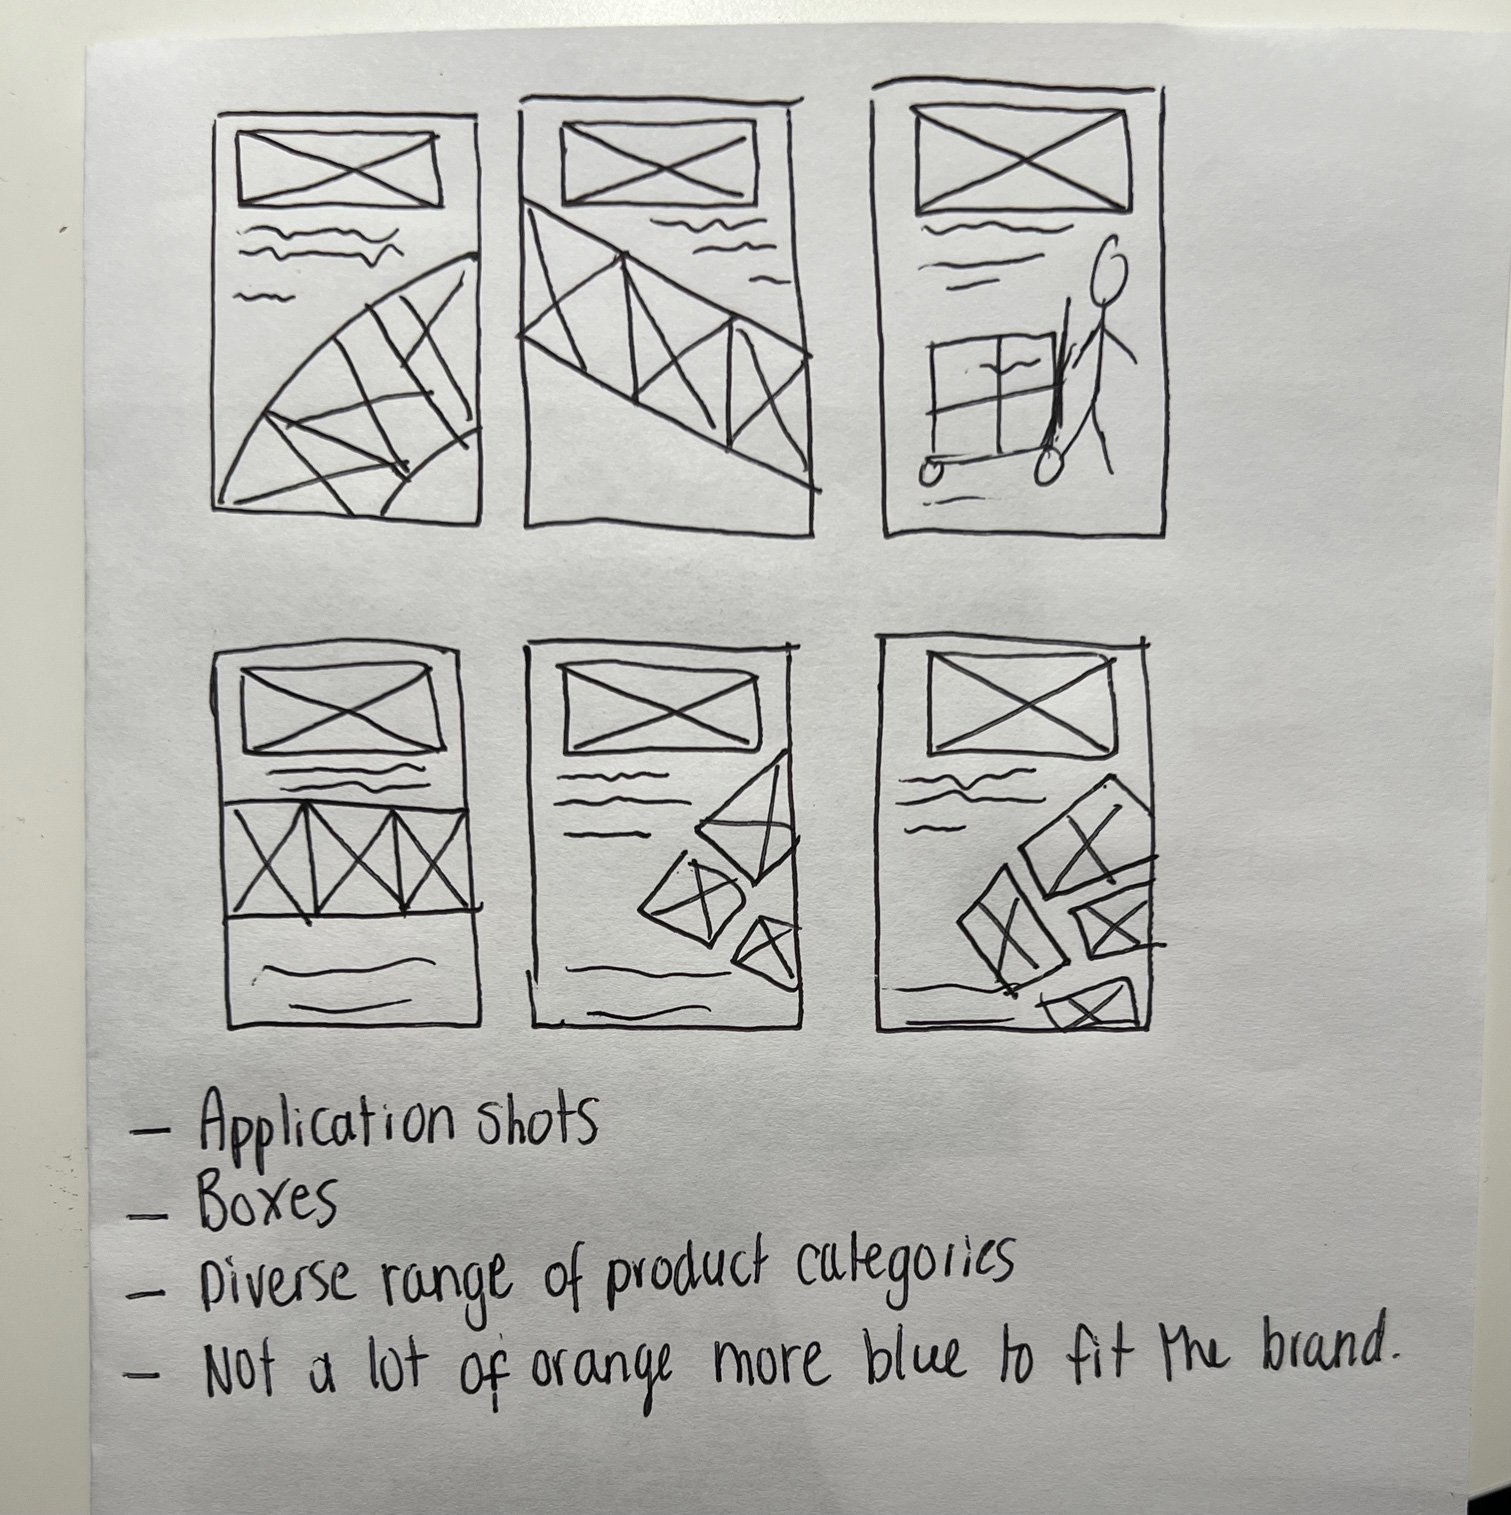 — Application shots
— Boxes
— Diverse range of product categories
— Not a lot of orange more blue to fit the brand.